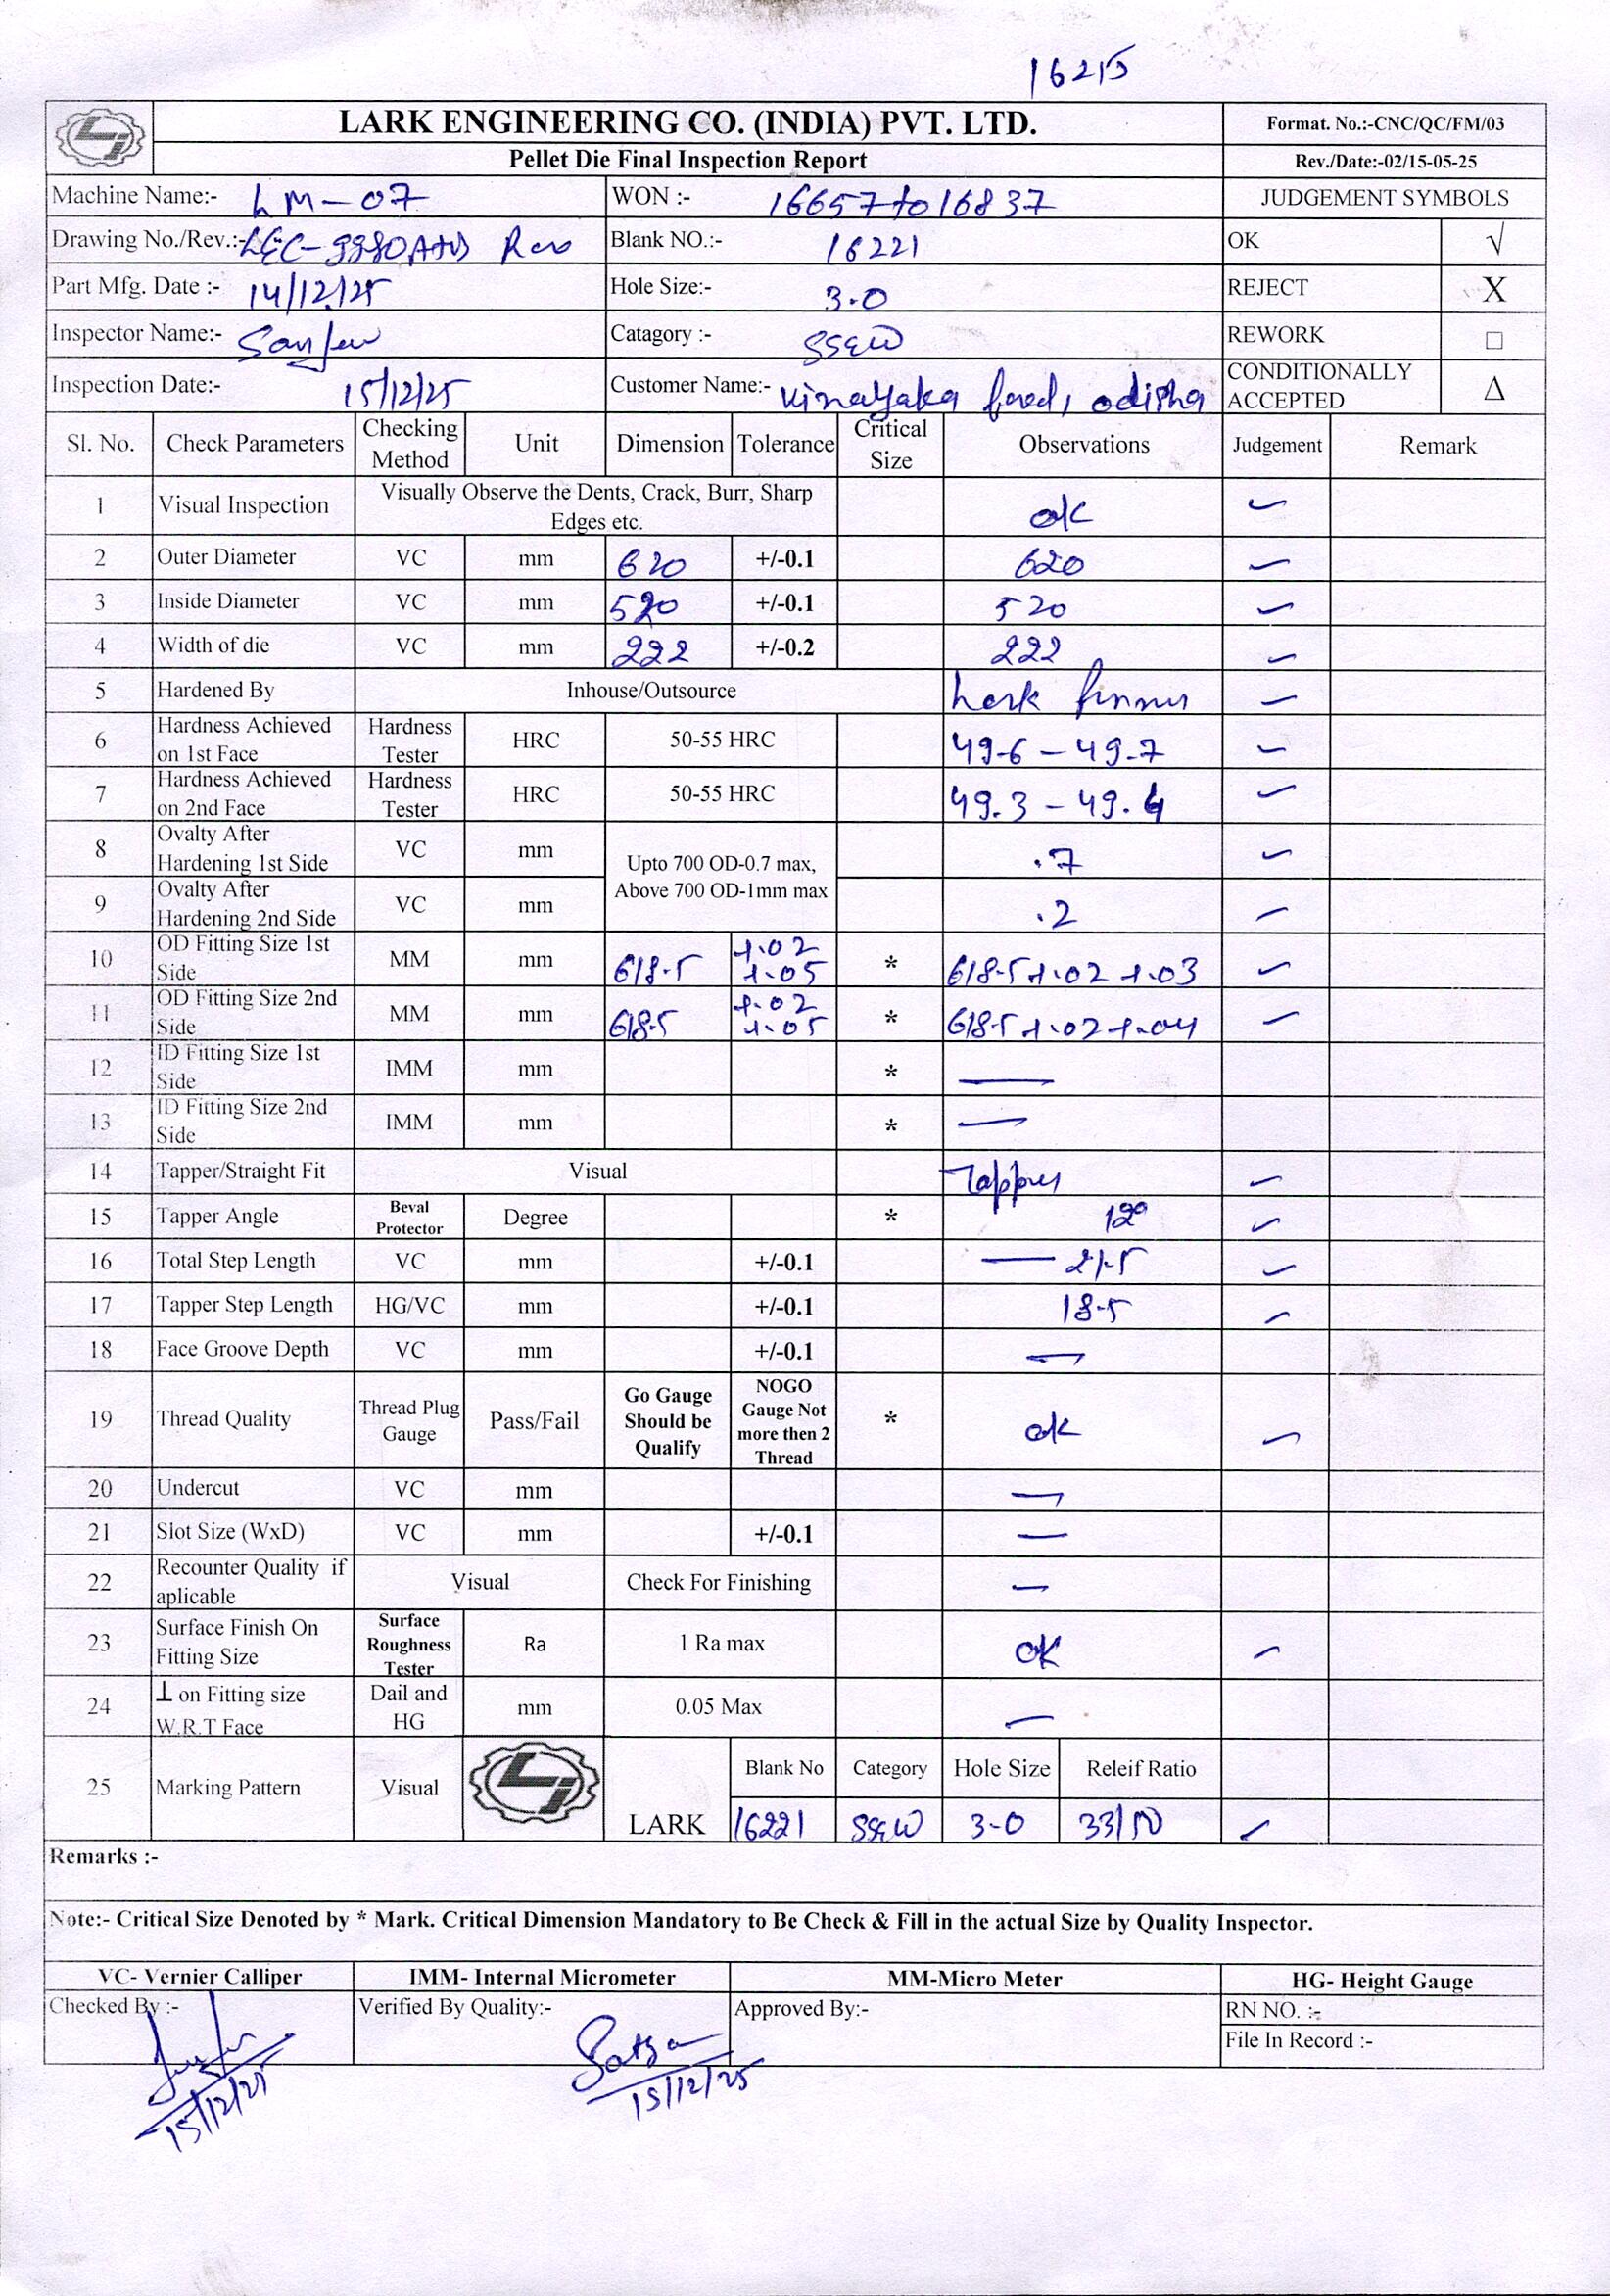 16215
LARK ENGINEERING CO. (INDIA) PVT. LTD.
Format. No.:-CNC/QC/FM/03
Pellet Die Final Inspection Report
Rev./Date:-02/15-05-25
Machine Name:- LM-07 WON :- 16657 to 16837 JUDGEMENT SYMBOLS
Drawing No./Rev.:- Blank NO.:- 16221 OK √
Part Mfg. Date :- 14/12/25 Hole Size:- 3.0 REJECT X
Inspector Name:- Catagory :- REWORK □
Inspection Date:- 15/12/25 Customer Name:- Vinayaka feed, odisha CONDITIONALLY ACCEPTED Δ
Sl. No. Check Parameters Checking Method Unit Dimension Tolerance Critical Size Observations Judgement Remark
1 Visual Inspection Visually Observe the Dents, Crack, Burr, Sharp Edges etc. ok
2 Outer Diameter VC mm 620 +/-0.1 620
3 Inside Diameter VC mm 520 +/-0.1 520
4 Width of die VC mm 222 +/-0.2 222
5 Hardened By Inhouse/Outsource
6 Hardness Achieved on 1st Face Hardness Tester HRC 50-55 HRC 49.6 – 49.7
7 Hardness Achieved on 2nd Face Hardness Tester HRC 50-55 HRC 49.3 – 49.4
8 Ovalty After Hardening 1st Side VC mm Upto 700 OD-0.7 max, Above 700 OD-1mm max .7
9 Ovalty After Hardening 2nd Side VC mm .2
10 OD Fitting Size 1st Side MM mm 618.5 +.02 +.05 * 618.5 +.02 +.03
11 OD Fitting Size 2nd Side MM mm 618.5 +.02 +.05 * 618.5 +.02 +.04
12 ID Fitting Size 1st Side IMM mm * —
13 ID Fitting Size 2nd Side IMM mm * —
14 Tapper/Straight Fit Visual Tapper
15 Tapper Angle Beval Protector Degree * 12°
16 Total Step Length VC mm +/-0.1 — 21.5
17 Tapper Step Length HG/VC mm +/-0.1 18.5
18 Face Groove Depth VC mm +/-0.1 —
19 Thread Quality Thread Plug Gauge Pass/Fail Go Gauge Should be Qualify NOGO Gauge Not more then 2 Thread * ok
20 Undercut VC mm —
21 Slot Size (WxD) VC mm +/-0.1 —
22 Recounter Quality if aplicable Visual Check For Finishing —
23 Surface Finish On Fitting Size Surface Roughness Tester Ra 1 Ra max OK
24 ⊥ on Fitting size W.R.T Face Dail and HG mm 0.05 Max —
25 Marking Pattern Visual LARK Blank No Category Hole Size Releif Ratio
16221 3.0
Remarks :-
Note:- Critical Size Denoted by * Mark. Critical Dimension Mandatory to Be Check & Fill in the actual Size by Quality Inspector.
VC- Vernier Calliper IMM- Internal Micrometer MM-Micro Meter HG- Height Gauge
Checked By :- Verified By Quality:- Approved By:- RN NO. :-
File In Record :-
15/12/25 15/12/25